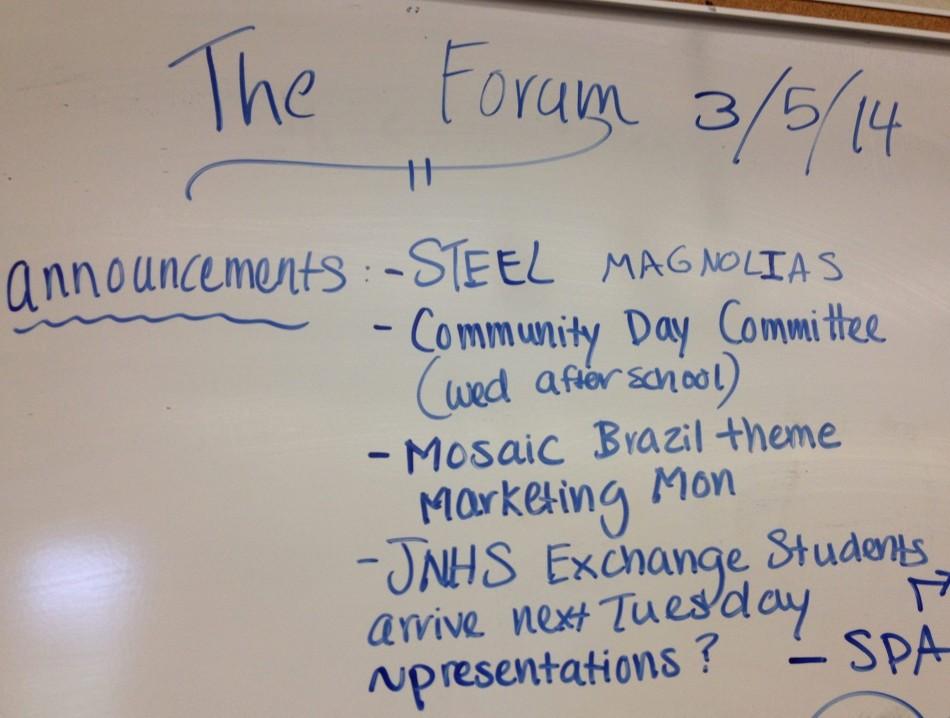 The Forum 3/5/14
announcements: - STEEL MAGNOLIAS
- Community Day Committee
(wed after school)
- Mosaic Brazil theme
Marketing Mon
- JNHS Exchange Students
arrive next Tuesday
presentations?
- SPA